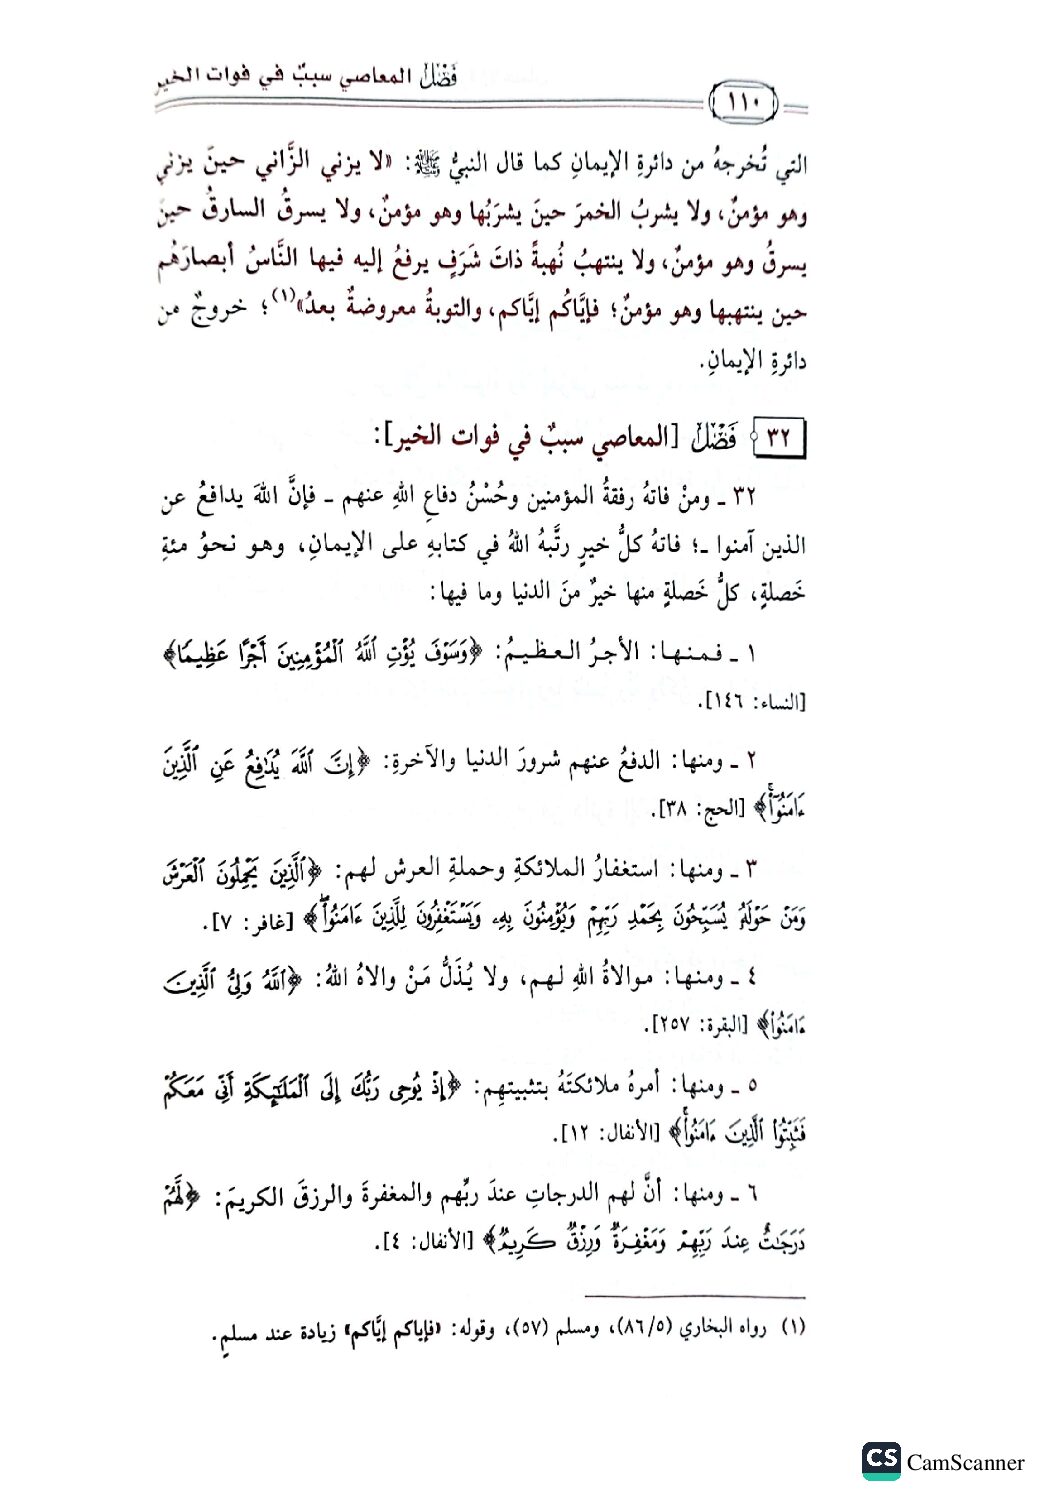 ١١٠
فَصْلٌ المعاصي سببٌ في فوات الخير
التي تُخرجهُ من دائرةِ الإيمانِ كما قال النبيُّ ﷺ: «لا يزني الزَّاني حينَ يزني
وهو مؤمنٌ، ولا يشربُ الخمرَ حينَ يشرَبُها وهو مؤمنٌ، ولا يسرقُ السارقُ حينَ
يسرقُ وهو مؤمنٌ، ولا ينتهبُ نُهبةً ذاتَ شَرَفٍ يرفعُ إليه فيها النَّاسُ أبصارَهُم
حين ينتهبها وهو مؤمنٌ؛ فإيَّاكُم إيَّاكم، والتوبةُ معروضةٌ بعدُ»(١)؛ خروجٌ من
دائرةِ الإيمانِ.
٣٢ فَصْلٌ [المعاصي سببٌ في فوات الخير]:
٣٢ ـ ومنْ فاتهُ رفقةُ المؤمنين وحُسْنُ دفاعِ اللهِ عنهم ـ فإنَّ اللهَ يدافعُ عن
الذين آمنوا ـ؛ فاتهُ كلُّ خيرٍ رتَّبهُ اللهُ في كتابهِ على الإيمانِ، وهو نحوُ مئةِ
خَصلةٍ، كلُّ خَصلةٍ منها خيرٌ منَ الدنيا وما فيها:
١ ـ فمنها: الأجرُ العظيمُ: ﴿وَسَوْفَ يُؤْتِ ٱللَّهُ ٱلْمُؤْمِنِينَ أَجْرًا عَظِيمًا﴾
[النساء: ١٤٦].
٢ ـ ومنها: الدفعُ عنهم شرورَ الدنيا والآخرةِ: ﴿إِنَّ ٱللَّهَ يُدَٰفِعُ عَنِ ٱلَّذِينَ
ءَامَنُوٓا۟ۗ﴾ [الحج: ٣٨].
٣ ـ ومنها: استغفارُ الملائكةِ وحملةِ العرش لهم: ﴿ٱلَّذِينَ يَحْمِلُونَ ٱلْعَرْشَ
وَمَنْ حَوْلَهُۥ يُسَبِّحُونَ بِحَمْدِ رَبِّهِمْ وَيُؤْمِنُونَ بِهِۦ وَيَسْتَغْفِرُونَ لِلَّذِينَ ءَامَنُوا۟ۖ﴾ [غافر: ٧].
٤ ـ ومنها: موالاةُ اللهِ لهم، ولا يُذَلُّ مَنْ والاهُ اللهُ: ﴿ٱللَّهُ وَلِىُّ ٱلَّذِينَ
ءَامَنُوا۟﴾ [البقرة: ٢٥٧].
٥ ـ ومنها: أمرهُ ملائكتَهُ بتثبيتهِم: ﴿إِذْ يُوحِى رَبُّكَ إِلَى ٱلْمَلَـٰٓئِكَةِ أَنِّى مَعَكُمْ
فَثَبِّتُوا۟ ٱلَّذِينَ ءَامَنُوا۟ۚ﴾ [الأنفال: ١٢].
٦ ـ ومنها: أنَّ لهم الدرجاتِ عندَ ربِّهم والمغفرةَ والرزقَ الكريمَ: ﴿لَّهُمْ
دَرَجَـٰتٌ عِندَ رَبِّهِمْ وَمَغْفِرَةٌ وَرِزْقٌ كَرِيمٌ﴾ [الأنفال: ٤].
(١) رواه البخاري (٨٦/٥)، ومسلم (٥٧)، وقوله: «فإياكم إيَّاكم» زيادة عند مسلمٍ.
CS CamScanner